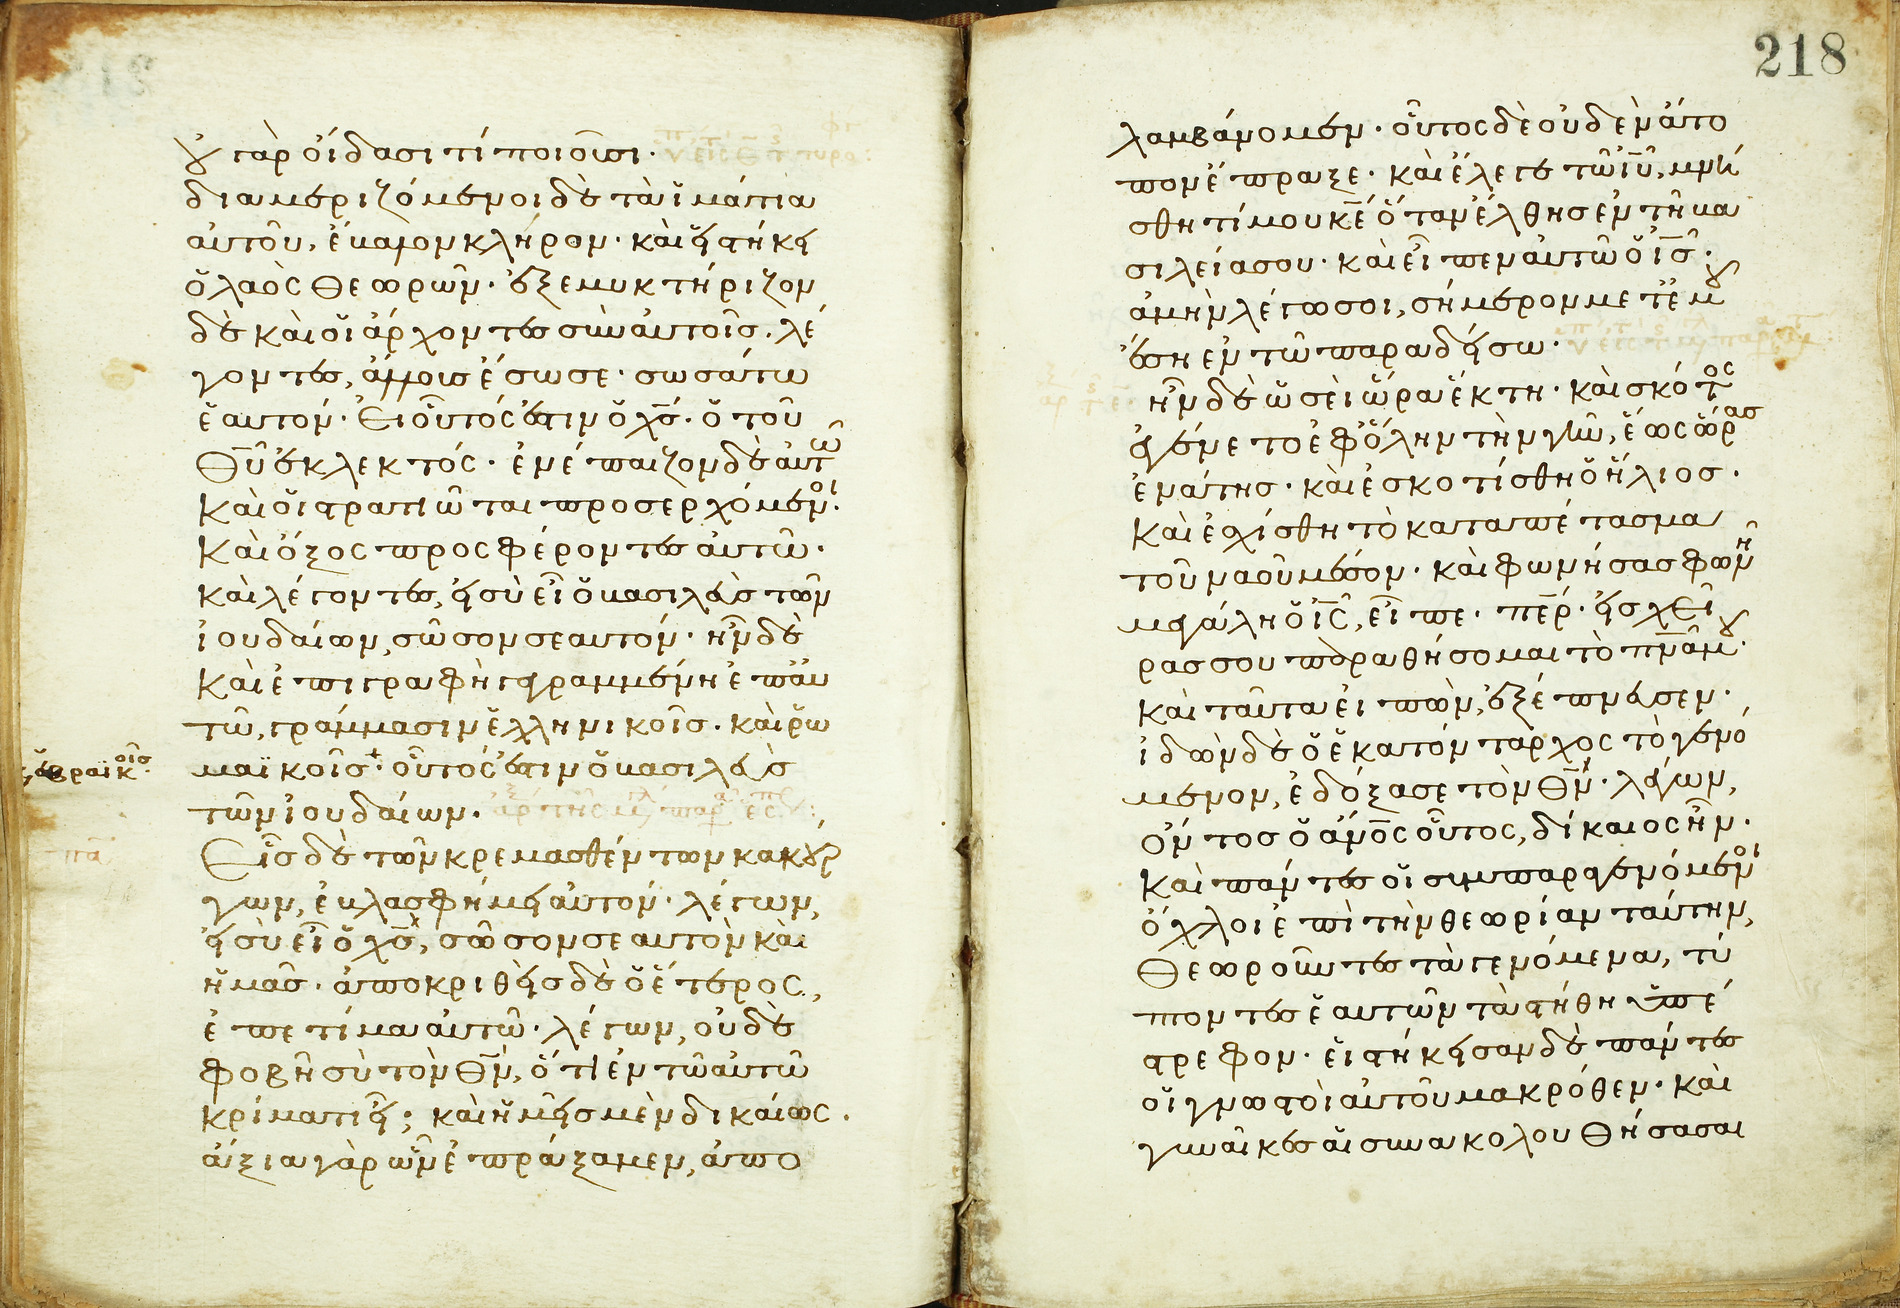 οὐ γὰρ οἴδασι τί ποιοῦσι.
διαμεριζόμενοι δὲ τὰ ἱμάτια
αὐτοῦ, ἔβαλον κλήρον· καὶ εἱστήκει
ὁ λαὸς θεωρῶν· ἐξεμυκτήριζον
δὲ καὶ οἱ ἄρχοντες σὺν αὐτοῖς. λέ
γοντες, ἄλλους ἔσωσε· σωσάτω
ἑαυτόν· εἰ οὗτός ἐστιν ὁ χς̅· ὁ τοῦ
θυ̅ ἐκλεκτός· ἐνέπαιζον δὲ αὐτῶ
καὶ οἱ στρατιῶται προσερχόμενοι·
καὶ ὄξος προσφέροντες αὐτῶ·
καὶ λέγοντες, εἰ σὺ εἶ ὁ βασιλεὺς τῶν
ἰουδαίων, σῶσον σεαυτόν· ἦν δὲ
καὶ ἐπιγραφὴ γεγραμμένη ἐπ' αὐ
τῶ, γράμμασιν ἑλληνικοῖς· καὶ ῥω
μαϊκοῖς· οὗτός ἐστιν ὁ βασιλεὺς
ἑβραϊκοῖς·
τῶν ἰουδαίων·
Εἷς δὲ τῶν κρεμασθέντων κακούρ
γων, ἐβλασφήμει αὐτόν· λέγων,
εἰ σὺ εἶ ὁ χς̅, σῶσον σεαυτὸν καὶ
ἡμᾶς· ἀποκριθεὶς δὲ ὁ ἕτερος,
ἐπετίμα αὐτῶ· λέγων, οὐδὲ
φοβῆ σὺ τὸν θν̅, ὅτι ἐν τῶ αὐτῶ
κρίματι εἶ; καὶ ἡμεῖς μὲν δικαίως.
ἄξια γὰρ ὧν ἐπράξαμεν, ἀπο
218
λαμβάνομεν· οὗτος δὲ οὐδὲν ἄτο
πον ἔπραξε· καὶ ἔλεγε τῶ ιυ̅, μνή
σθητί μου κε̅ ὅταν ἔλθης ἐν τῆ βα
σιλεία σου· καὶ εἶπεν αὐτῶ ὁ ις̅·
ἀμὴν λέγω σοι, σήμερον μετ' ἐμοῦ
ἔση ἐν τῶ παραδείσω·
ἦν δὲ ὡσεὶ ὥρα ἕκτη· καὶ σκότος
ἐγένετο ἐφ' ὅλην τὴν γῆν, ἕως ὥρας
ἐνάτης· καὶ ἐσκοτίσθη ὁ ἥλιος·
καὶ ἐσχίσθη τὸ καταπέτασμα
τοῦ ναοῦ μέσον· καὶ φωνήσας φωνῆ
μεγάλη ὁ ις̅, εἶπε· περ̅· εἰς χεῖ
ρας σου παραθήσομαι τὸ πνα̅ μου·
καὶ ταῦτα εἰπὼν, ἐξέπνευσεν·
ἰδὼν δὲ ὁ ἑκατόνταρχος τὸ γενό
μενον, ἐδόξασε τὸν θν̅· λέγων,
ὄντος ὁ ἄνος̅ οὗτος, δίκαιος ἦν·
καὶ πάντες οἱ συμπαραγενόμενοι
ὄχλοι ἐπὶ τὴν θεωρίαν ταύτην,
θεωροῦντες τὰ γενόμενα, τύ
πτοντες ἑαυτῶν τὰ στήθη ὑπέ
στρεφον· εἱστήκεισαν δὲ πάντες
οἱ γνωστοὶ αὐτοῦ μακρόθεν· καὶ
γυναῖκες αἱ συνακολουθήσασαι